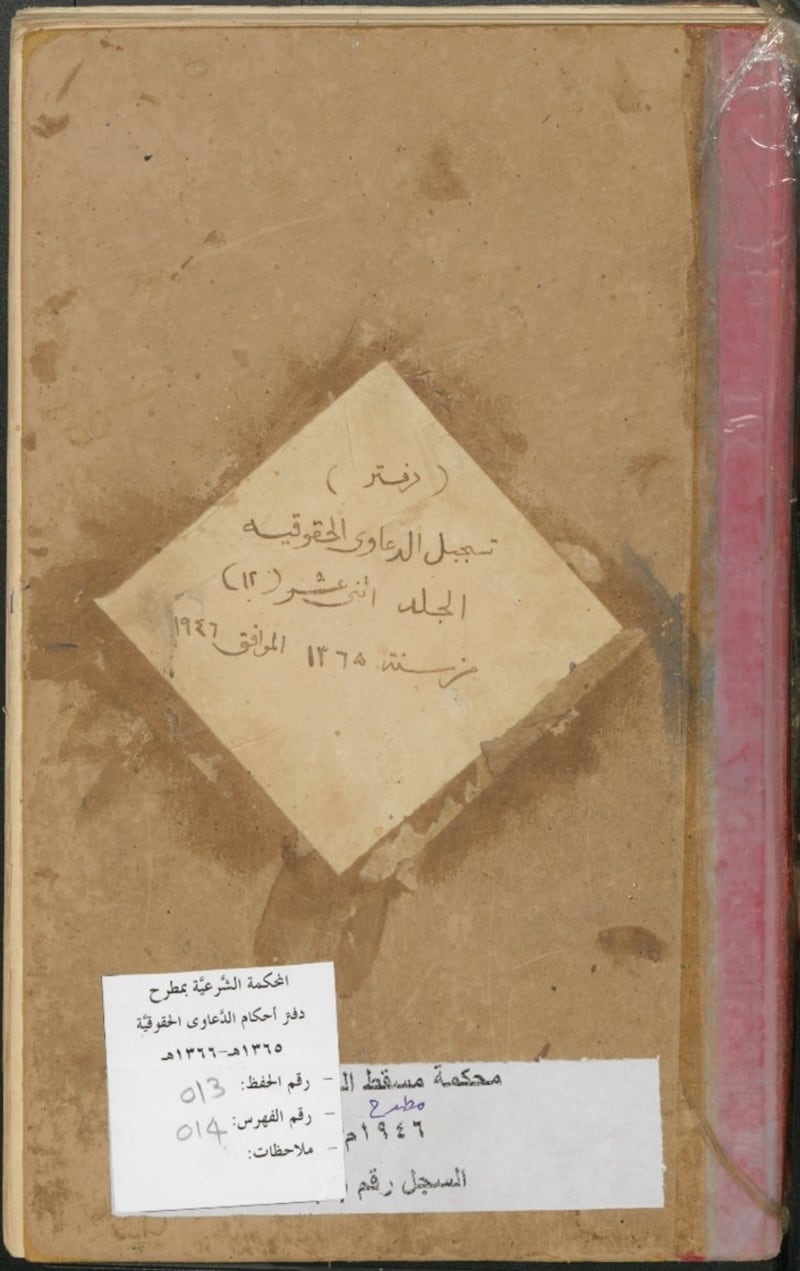 ( دفتر )
تسجيل الدعاوى الحقوقيه
الجلد اثنى عشر (١٢)
من سنة ١٣٦٥ الموافق ١٩٤٦
المحكمة الشَّرعيَّة بمطرح
دفتر أحكام الدَّعاوى الحقوقيَّة
١٣٦٥هـ-١٣٦٦هـ
- رقم الحفظ: 013
- رقم الفهرس: 014
- ملاحظات:
محكمة مسقط
مطرح
١٩٤٦م
السجل رقم